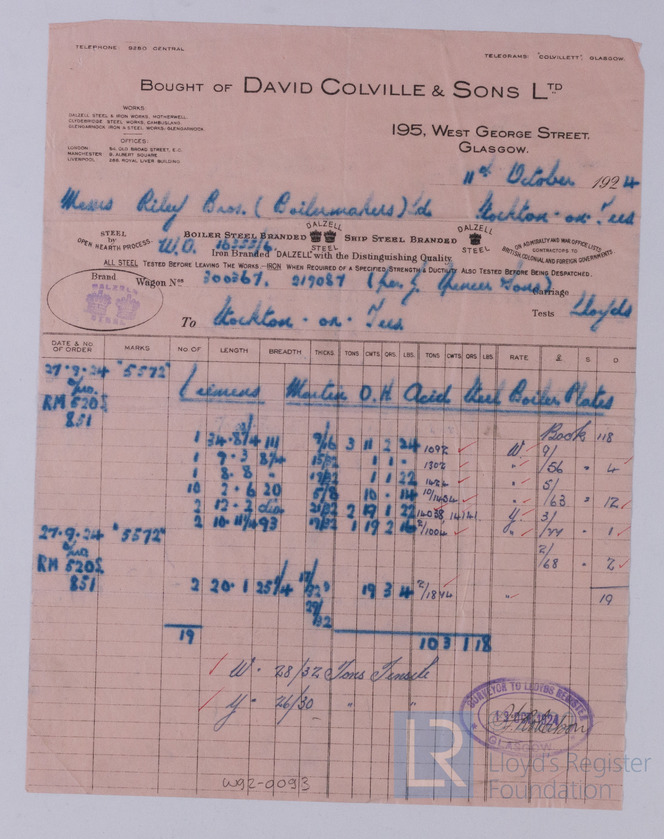 TELEPHONE 9280 CENTRAL
TELEGRAMS: "COLVILLETT", GLASGOW.
BOUGHT OF DAVID COLVILLE & SONS LTD
WORKS
DALZELL STEEL & IRON WORKS, MOTHERWELL.
CLYDEBRIDGE STEEL WORKS, CAMBUSLANG.
GLENGARNOCK IRON & STEEL WORKS, GLENGARNOCK.
OFFICES:
LONDON 54, OLD BROAD STREET, E.C.
MANCHESTER 9, ALBERT SQUARE
LIVERPOOL 268, ROYAL LIVER BUILDING
195, WEST GEORGE STREET.
GLASGOW.
11th October 1924
Messrs Riley Bros. (Boilermakers) Ltd Stockton-on-Tees
STEEL by OPEN HEARTH PROCESS.
BOILER STEEL BRANDED DALZELL STEEL SHIP STEEL BRANDED DALZELL STEEL
ON ADMIRALTY AND WAR OFFICE LISTS
CONTRACTORS TO
BRITISH, COLONIAL AND FOREIGN GOVERNMENTS.
W.O.
Iron Branded DALZELL with the Distinguishing Quality.
ALL STEEL TESTED BEFORE LEAVING THE WORKS—IRON WHEN REQUIRED OF A SPECIFIED STRENGTH & DUCTILITY ALSO TESTED BEFORE BEING DESPATCHED.
Brand
DALZELL
STEEL
Wagon Nos 300367. 219087 (per J. Spencer Sons) Carriage
To Stockton-on-Tees Tests Lloyds
DATE & No. OF ORDER MARKS No OF LENGTH BREADTH THICKS. TONS CWTS QRS. LBS. TONS CWTS. QRS. LBS RATE £ S D
27-9-24 "5572" Siemens Martin O.H. Acid Steel Boiler Plates
RM 5205
851
Book 118
1 34-8 1/4 111 9/16 3 11 2 24 1092 W. 9/
1 9-3 15/32 1 1 - 1302 " /56 " 4
1 8-8 " 1 1 22 " 5/
10 2-6 20 5/8 10 - 14 " /63 " 12
2 12-2 dia 21/32 2 19 1 22 14038 14141 Y. 3/
2 93 1 19 2 2/1004 " " 1
27-9-24 "5572"
RM 5205
851
2/
/68 " 2
2 20-1 19 3 4 " 19
29/32
19
10 3 1 18
W - 28/32 Tons Tensile
Y - 26/30 " "
SURVEYOR TO LLOYDS REGISTER
GLASGOW
LR
Lloyd's Register
Foundation
W92-0093